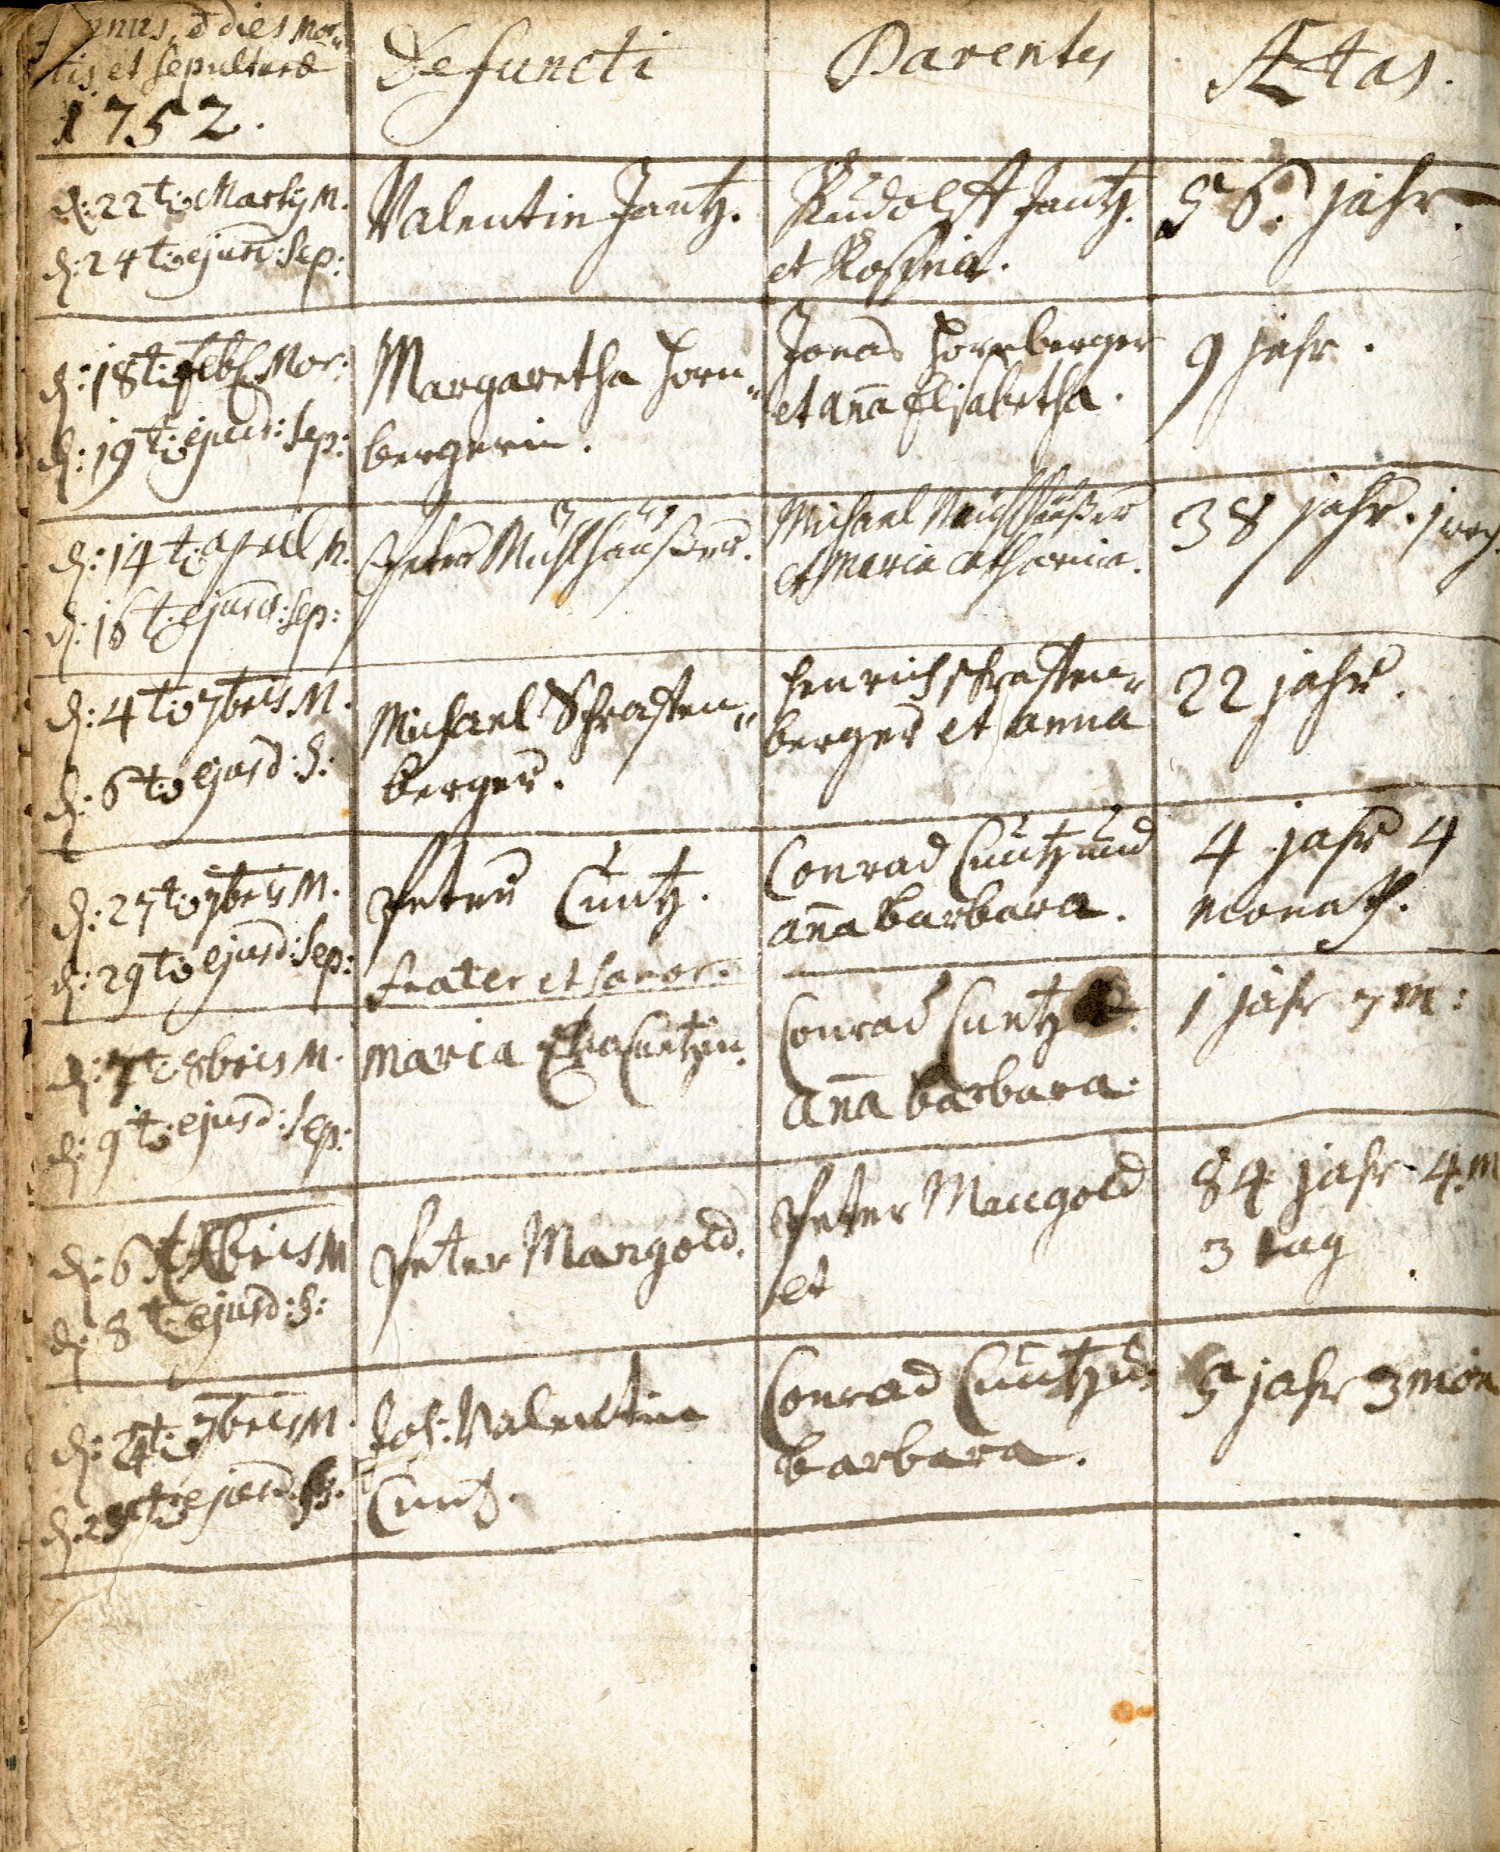 Annus, et dies Mor„
tis et sepulturæ
1752.
Defuncti
Parentes
Ætas.
d: 22t Martÿ M.
d: 24t: ejusd: Sep:
Valentin Jantz.
Rudolff Jantz.
et Rosina.
56. jahr.
d: 18t: Feb: Mor:
d: 19t: ejusd: Sep:
Margaretha Horn„
bergerin.
Jonas Hornberger
et aña Elisabetha.
9 jahr.
d: 14t: aprill M.
d: 16t: ejusd: Sep:
Peter Mühlhäußer.
Michael Mühlhäußer
et Maria Catharina.
38 jahr.
d: 4t: 7bris M.
d: 6t: ejusd: S:
Michael Schrasten„
berger.
Henrich Schrasten„
berger et anna
22 jahr.
d: 27t: 7bris M.
d: 29t: ejusd: Sep:
Peter Cuntz.
frater et soror.
Conrad Cuntz und
aña barbara.
4 jahr 4
monath.
d: 7t: 8bris M.
d: 9t: ejusd: Sep:
Maria Eva Cuntzin.
Conrad Cuntz
aña barbara.
1 jahr 7 M:
d: 6t bris M
d: 8t ejusd: S:
Peter Mangold.
Peter Mangold
et
84 jahr 4. M
3 tag
d: 7bris M.
d: ejusd: S:
Joh: Valentin
Cuntz.
Conrad Cuntz u:
barbara.
5 jahr 3 mon